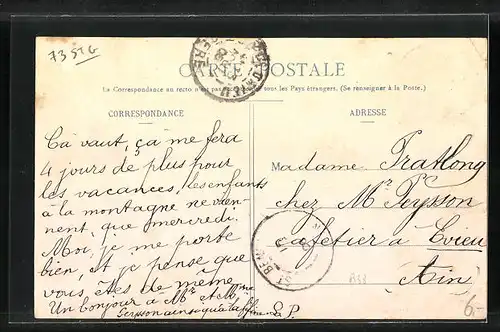 73 STG
CARTE POSTALE
La Correspondance au recto n'est pas tous les Pays étrangers. (Se renseigner à la Poste.)
CORRESPONDANCE
Ça vaut, ça me fera
4 jours de plus pour
les vacances, les enfants
à la montagne ne vien-
nent, que mercredi.
Moi, je me porte
bien, et je pense que
vous êtes de même
Un bonjour à Mr et Mme
ainsi qu'à
ADRESSE
Madame Tratlong
chez Mr Peysson
cafetier à Evieu
Ain
P
6.-